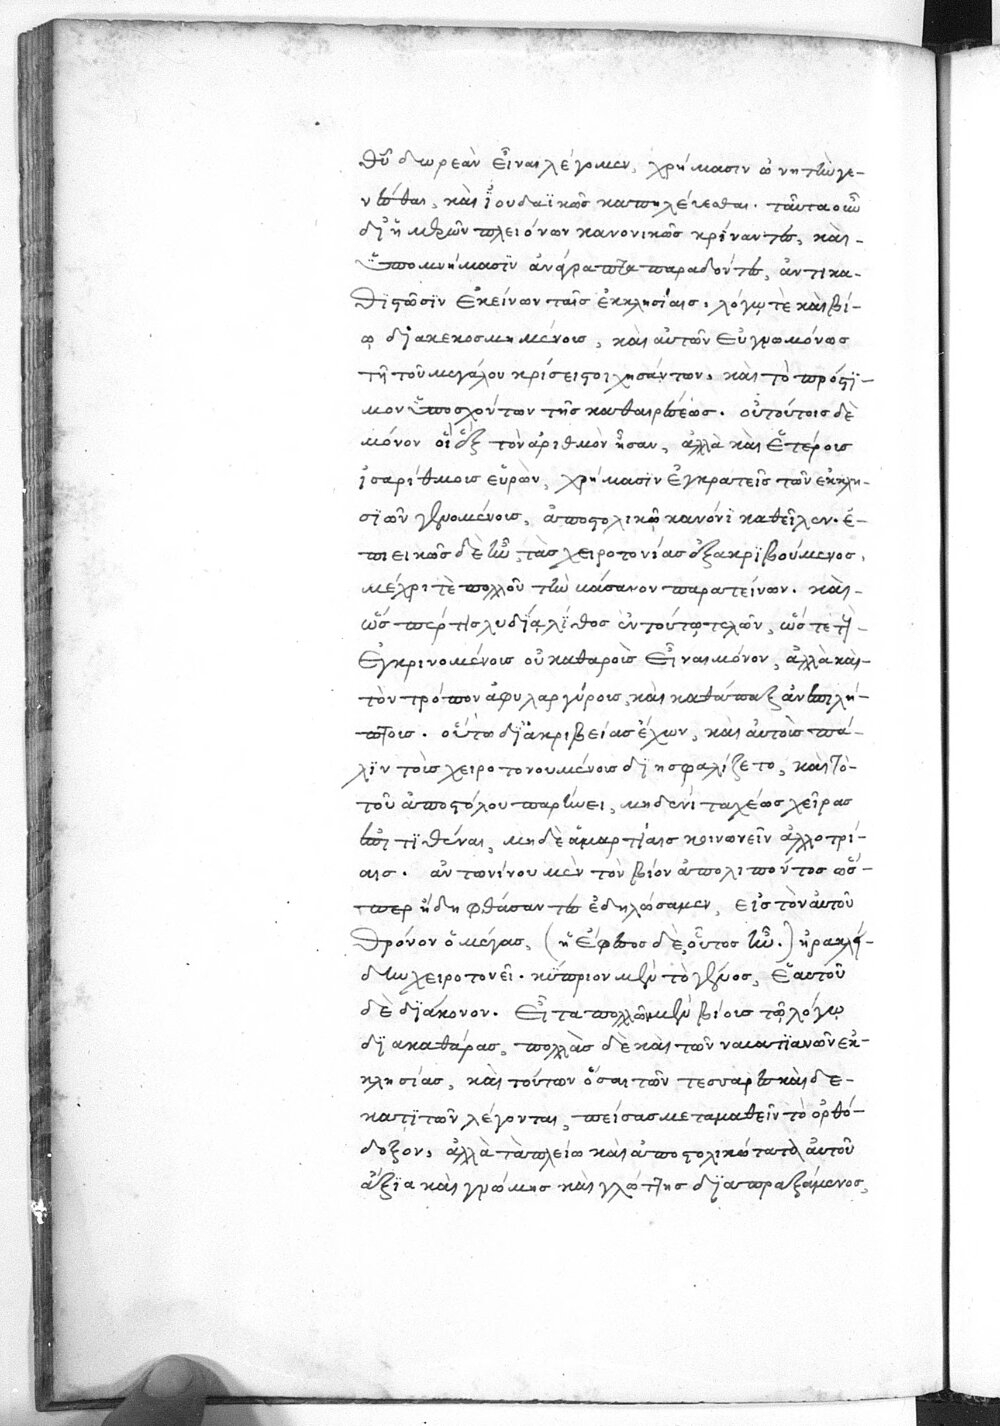 θυ δωρεὰν εἶναι λέγομεν, χρήμασιν ὠνητὴν γε-
νέσθαι, καὶ ἰουδαϊκῶς καπηλεύεσθαι. ταῦτα οὖν
δι' ἡμερῶν πλειόνων κανονικῶς κρίναντες, καὶ
ὑπομνήμασιν ἀνάγραπτα παραδόντες, ἀντικα-
θιστῶσιν ἐκείνων ταῖς ἐκκλησίαις, λόγῳ τὲ καὶ βί-
ῳ διακεκοσμημένοις, καὶ αὐτῶν εὐγνωμόνως
τῆ τοῦ μεγάλου κρίσει στοιχησάντων, καὶ τὸ πρόστι-
μον ὑποσχόντων τῆς καθαιρέσεως. οὐ τούτοις δὲ
μόνον οἳ ἓξ τὸν ἀριθμὸν ἦσαν, ἀλλὰ καὶ ἑτέροις
ἰσαρίθμοις εὑρὼν, χρήμασιν ἐγκρατεῖς τῶν ἐκκλη-
σιῶν γενομένοις, ἀποστολικῷ κανόνι καθεῖλεν. ἐ-
πιεικῶς δὲ ἦν τὰς χειροτονίας ἐξακριβούμενος,
μέχρι τὲ πολλοῦ τὴν βάσανον παρατείνων. καὶ
ὥσπερ τὶς λυδία λίθος ἐν τούτῳ τελῶν, ὥστε τοῖς
ἐγκρινομένοις οὐ καθαροῖς εἶναι μόνον, ἀλλὰ καὶ
τὸν τρόπον ἀφυλαργύροις, καὶ καθάπαξ ἀνεπιλή-
πτοις. οὕτω δι' ἀκριβείας ἔχων, καὶ αὐτοῖς πά-
λιν τοῖς χειροτονουμένοις διησφαλίζετο, καὶ τὸ
τοῦ ἀποστόλου παρήνει, μηδενὶ ταχέως χεῖρας
ἐπιτιθέναι, μηδὲ ἁμαρτίαις κοινωνεῖν ἀλλοτρί-
αις. ἀντωνίνου μὲν τὸν βίον ἀπολιπόντος ὥσ-
περ ἤδη φθάσαντες ἐδηλώσαμεν, εἰς τὸν αὐτοῦ
θρόνον ὁ μέγας, (ἡ ἔφεσος δὲ οὗτος ἦν.) ἡρακλεί-
δην χειροτονεῖ. κύπριον μὲν τὸ γένος, ἑαυτοῦ
δὲ διάκονον. εἶτα πολλῶν μὲν βίους τῷ λόγῳ
διακαθάρας, πολλὰς δὲ καὶ τῶν ναυατιανῶν ἐκ-
κλησίας, καὶ τούτων ὅσαι τῶν τεσσαρεσκαιδε-
κατιτῶν λέγονται, πείσας μεταμαθεῖν τὸ ὀρθό-
δοξον, ἀλλὰ τὰ πλείω καὶ ἀποστολικώτατα αὐτοῦ
ἄξια καὶ γνώμης καὶ γλώττης διαπραξάμενος,